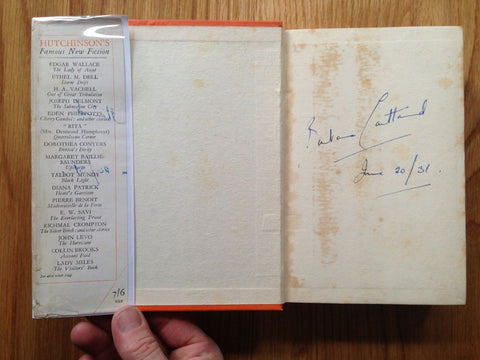 HUTCHINSON'S
Famous New Fiction
EDGAR WALLACE
The Lady of Ascot
ETHEL M. DELL
Storm Drift
H. A. VACHELL
Out of Great Tribulation
JOSEPH DELMONT
The Submarine City
EDEN PHILLPOTTS
Cherry Gambol; and other stories
"RITA"
(Mrs. Desmond Humphreys)
Quarrelsome Corner
DOROTHEA CONYERS
Denton's Derby
MARGARET BAILLIE-
SAUNDERS
TALBOT MUNDY
Black Light
DIANA PATRICK
Heart's Garrison
PIERRE BENOIT
Mademoiselle de la Ferté
E. W. SAVI
The Everlasting Trust
RICHMAL CROMPTON
The Silver Birch and other stories
JOHN LEVO
The Hurricane
COLLIN BROOKS
Account Paid
LADY MILES
The Visitors' Book
See also other flap
7/6
Barbara Cartland
June 20/31.